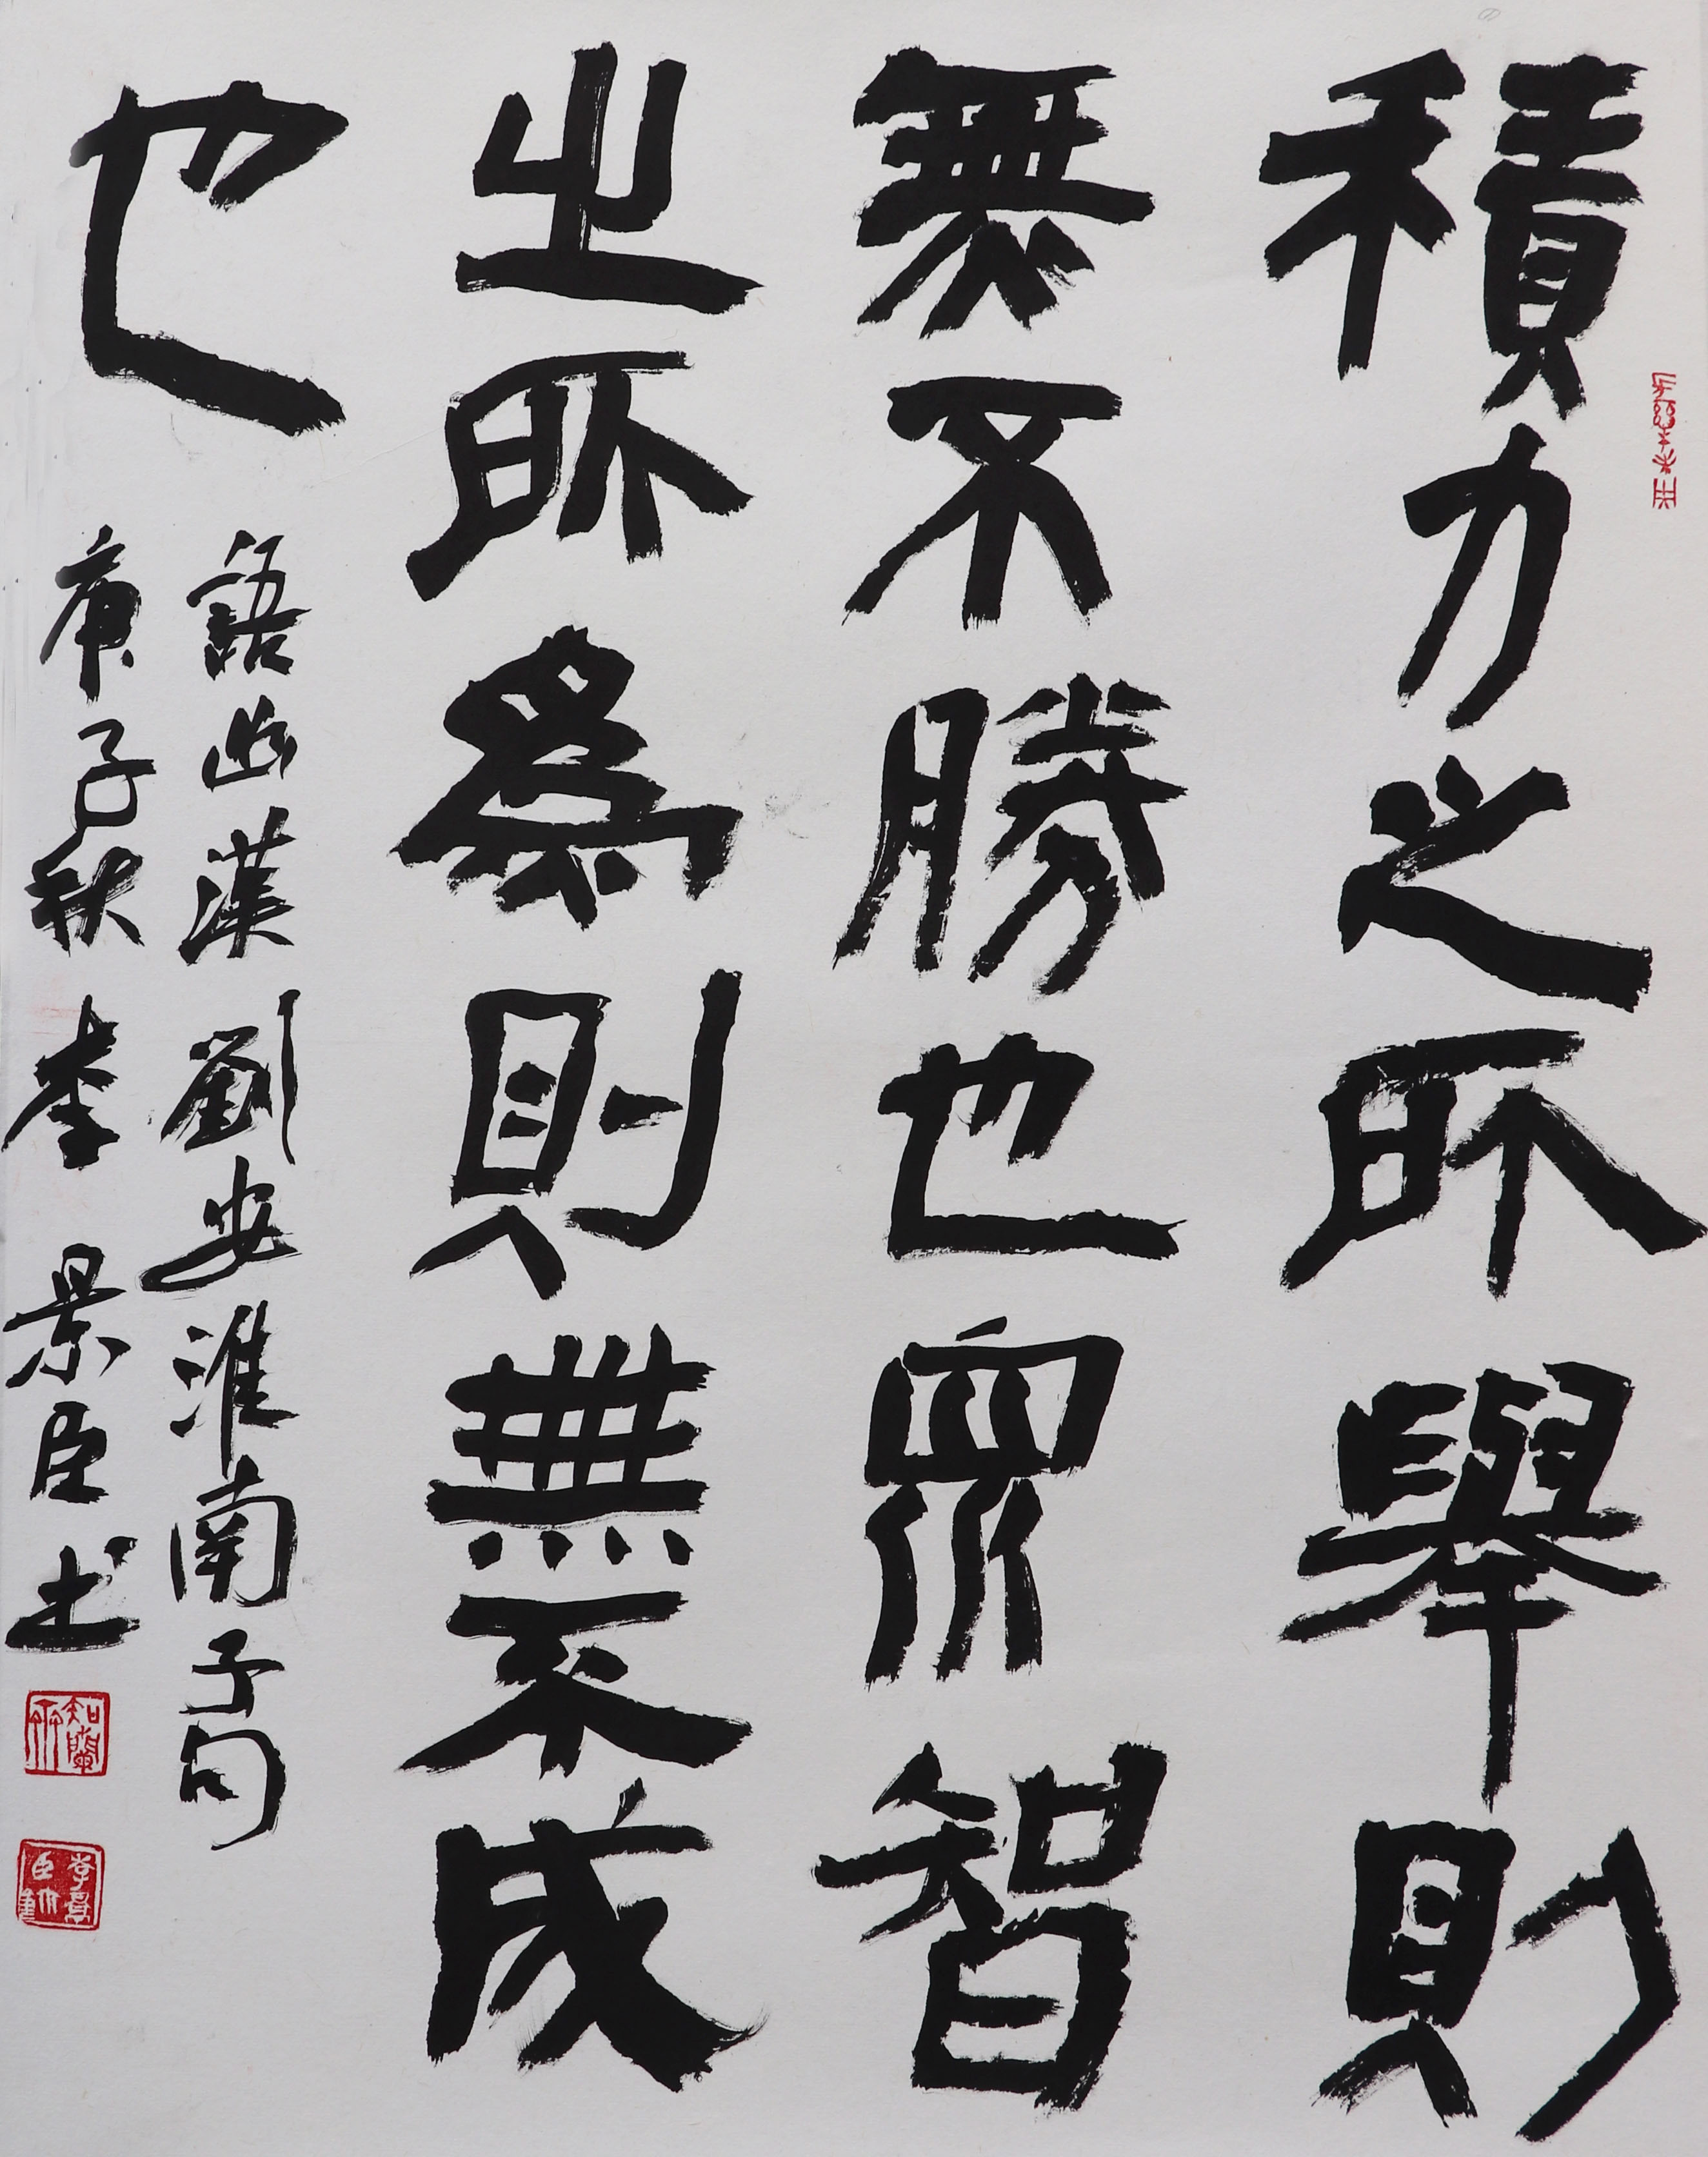 積力之所舉則
無不勝也眾智
之所為則無不成
也
語出漢劉安淮南子句
庚子秋李景臣书